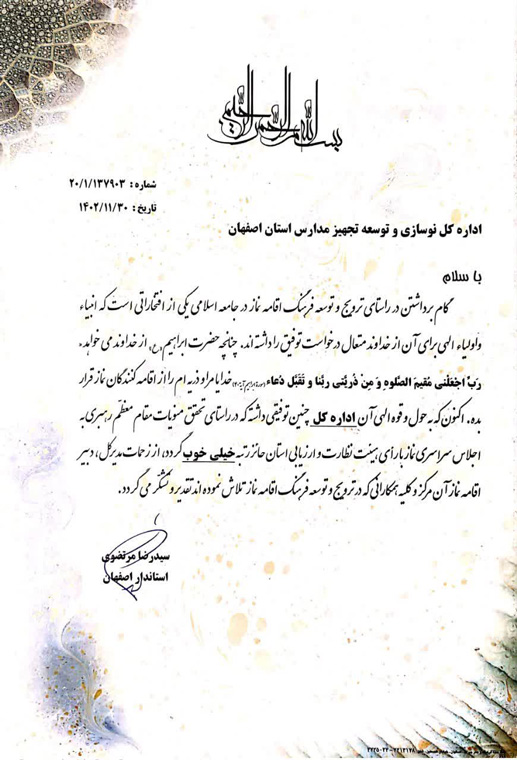 بسم الله الرحمن الرحیم
شماره : ۲۰/۱/۱۳۷۹۰۳
تاریخ : ۱۴۰۲/۱۱/۳۰
اداره کل نوسازی و توسعه تجهیز مدارس استان اصفهان
با سلام
گام برداشتن در راستای ترویج و توسعه فرهنگ اقامه نماز در جامعه اسلامی یکی از افتخاراتی است که انبیاء
و اولیاء الهی برای آن از خداوند متعال درخواست توفیق را داشته اند. چنانچه حضرت ابراهیم(ع) از خداوند می خواهد.
رَبِّ اجْعَلْنی مُقیمَ الصَّلوهِ وَ مِنْ ذُرِّیَّتی رَبَّنا وَ تَقَبَّلْ دُعاء (سوره ابراهیم آیه ۴۰) خدایا مرا و ذریه ام را از اقامه کنندگان نماز قرار
بده. اکنون که به حول و قوه الهی آن اداره کل چنین توفیقی داشته که در راستای تحقق منویات مقام معظم رهبری به
اجلاس سراسری نماز با رأی هیئت نظارت و ارزیابی استان حائز رتبه خیلی خوب گردد، از زحمات مدیرکل، دبیر
اقامه نماز آن مرکز و کلیه همکارانی که در ترویج و توسعه فرهنگ اقامه نماز تلاش نموده اند تقدیر و تشکر می گردد.
سیدرضا مرتضوی
استاندار اصفهان